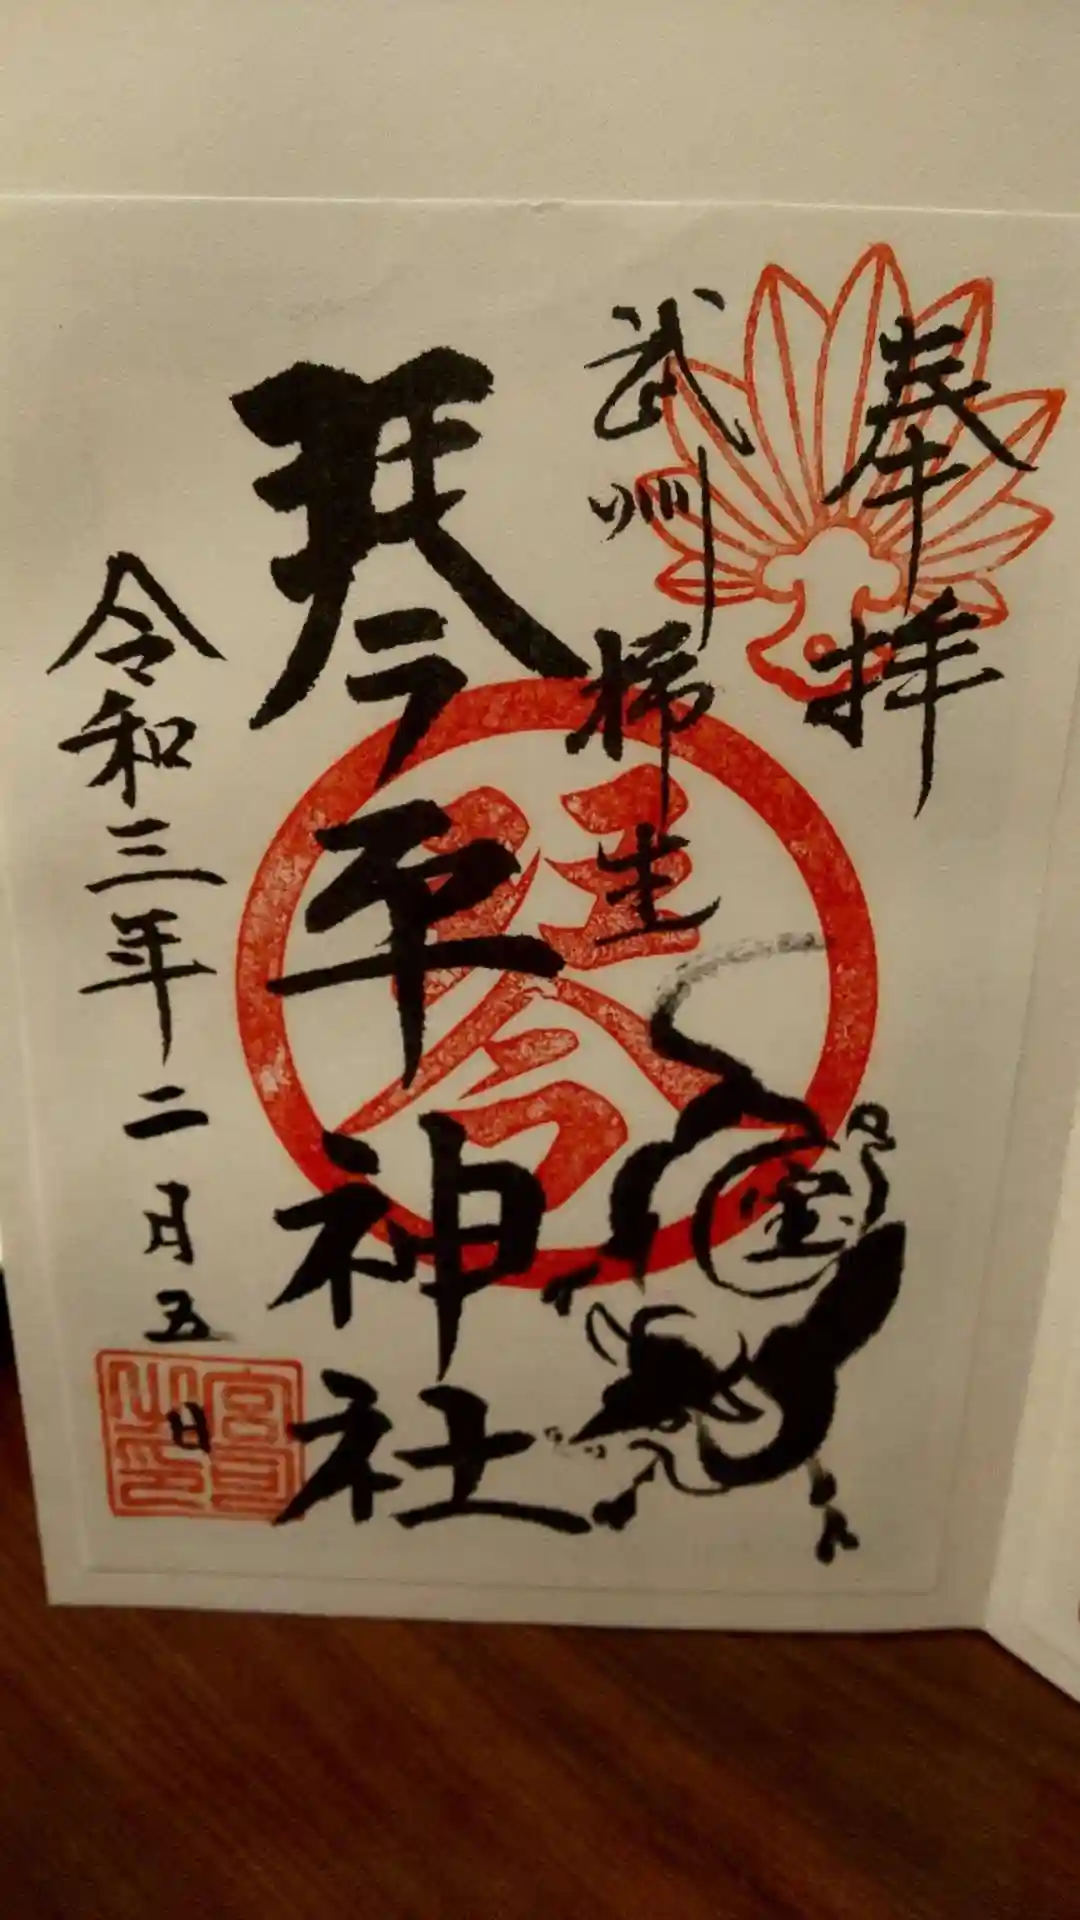 奉拝
武州柿生
琴平神社
令和三年二月五日
琴
宝
宮司之印